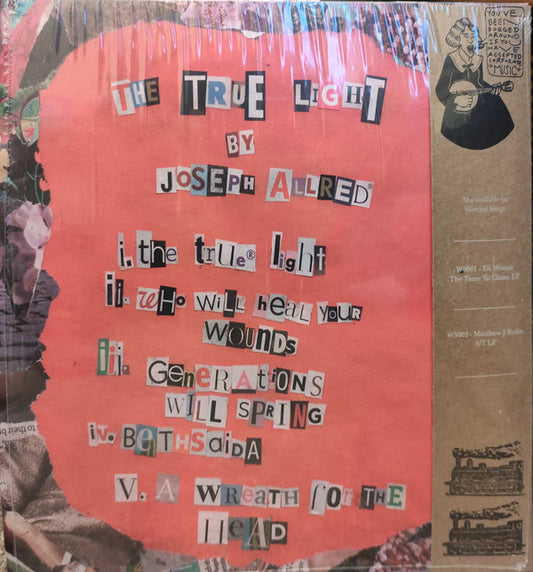 THE TRUE LIGHT
BY
JOSEPH ALLRED®
i. the true® light
ii. wHo will heal your
WOUNDS
iii. GenerAtiONS
WILL SPRING
iv. BeTHSaiDA
V. A WReATH foR THE
HeAD
YOU'VE
BEEN
AROUND
HAVE
ACCEPTED
CORPORATE
MUSIC
Also available on
Worried Songs
WS001 - Eli Winter
The Time To Come LP
WS002 - Matthew J Rolin
S/T LP
to their